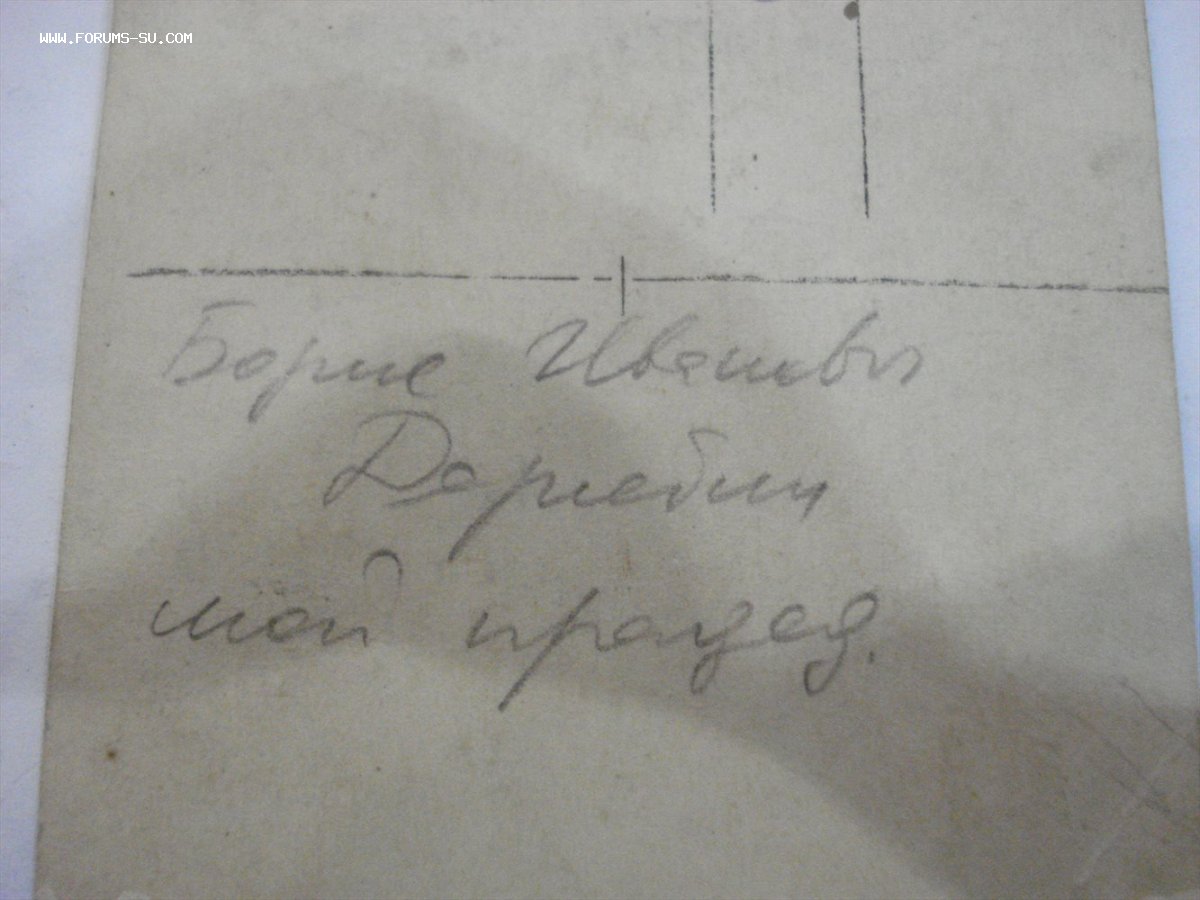 WWW.FORUMS-SU.COM
Борис Иванович
мой прадед.